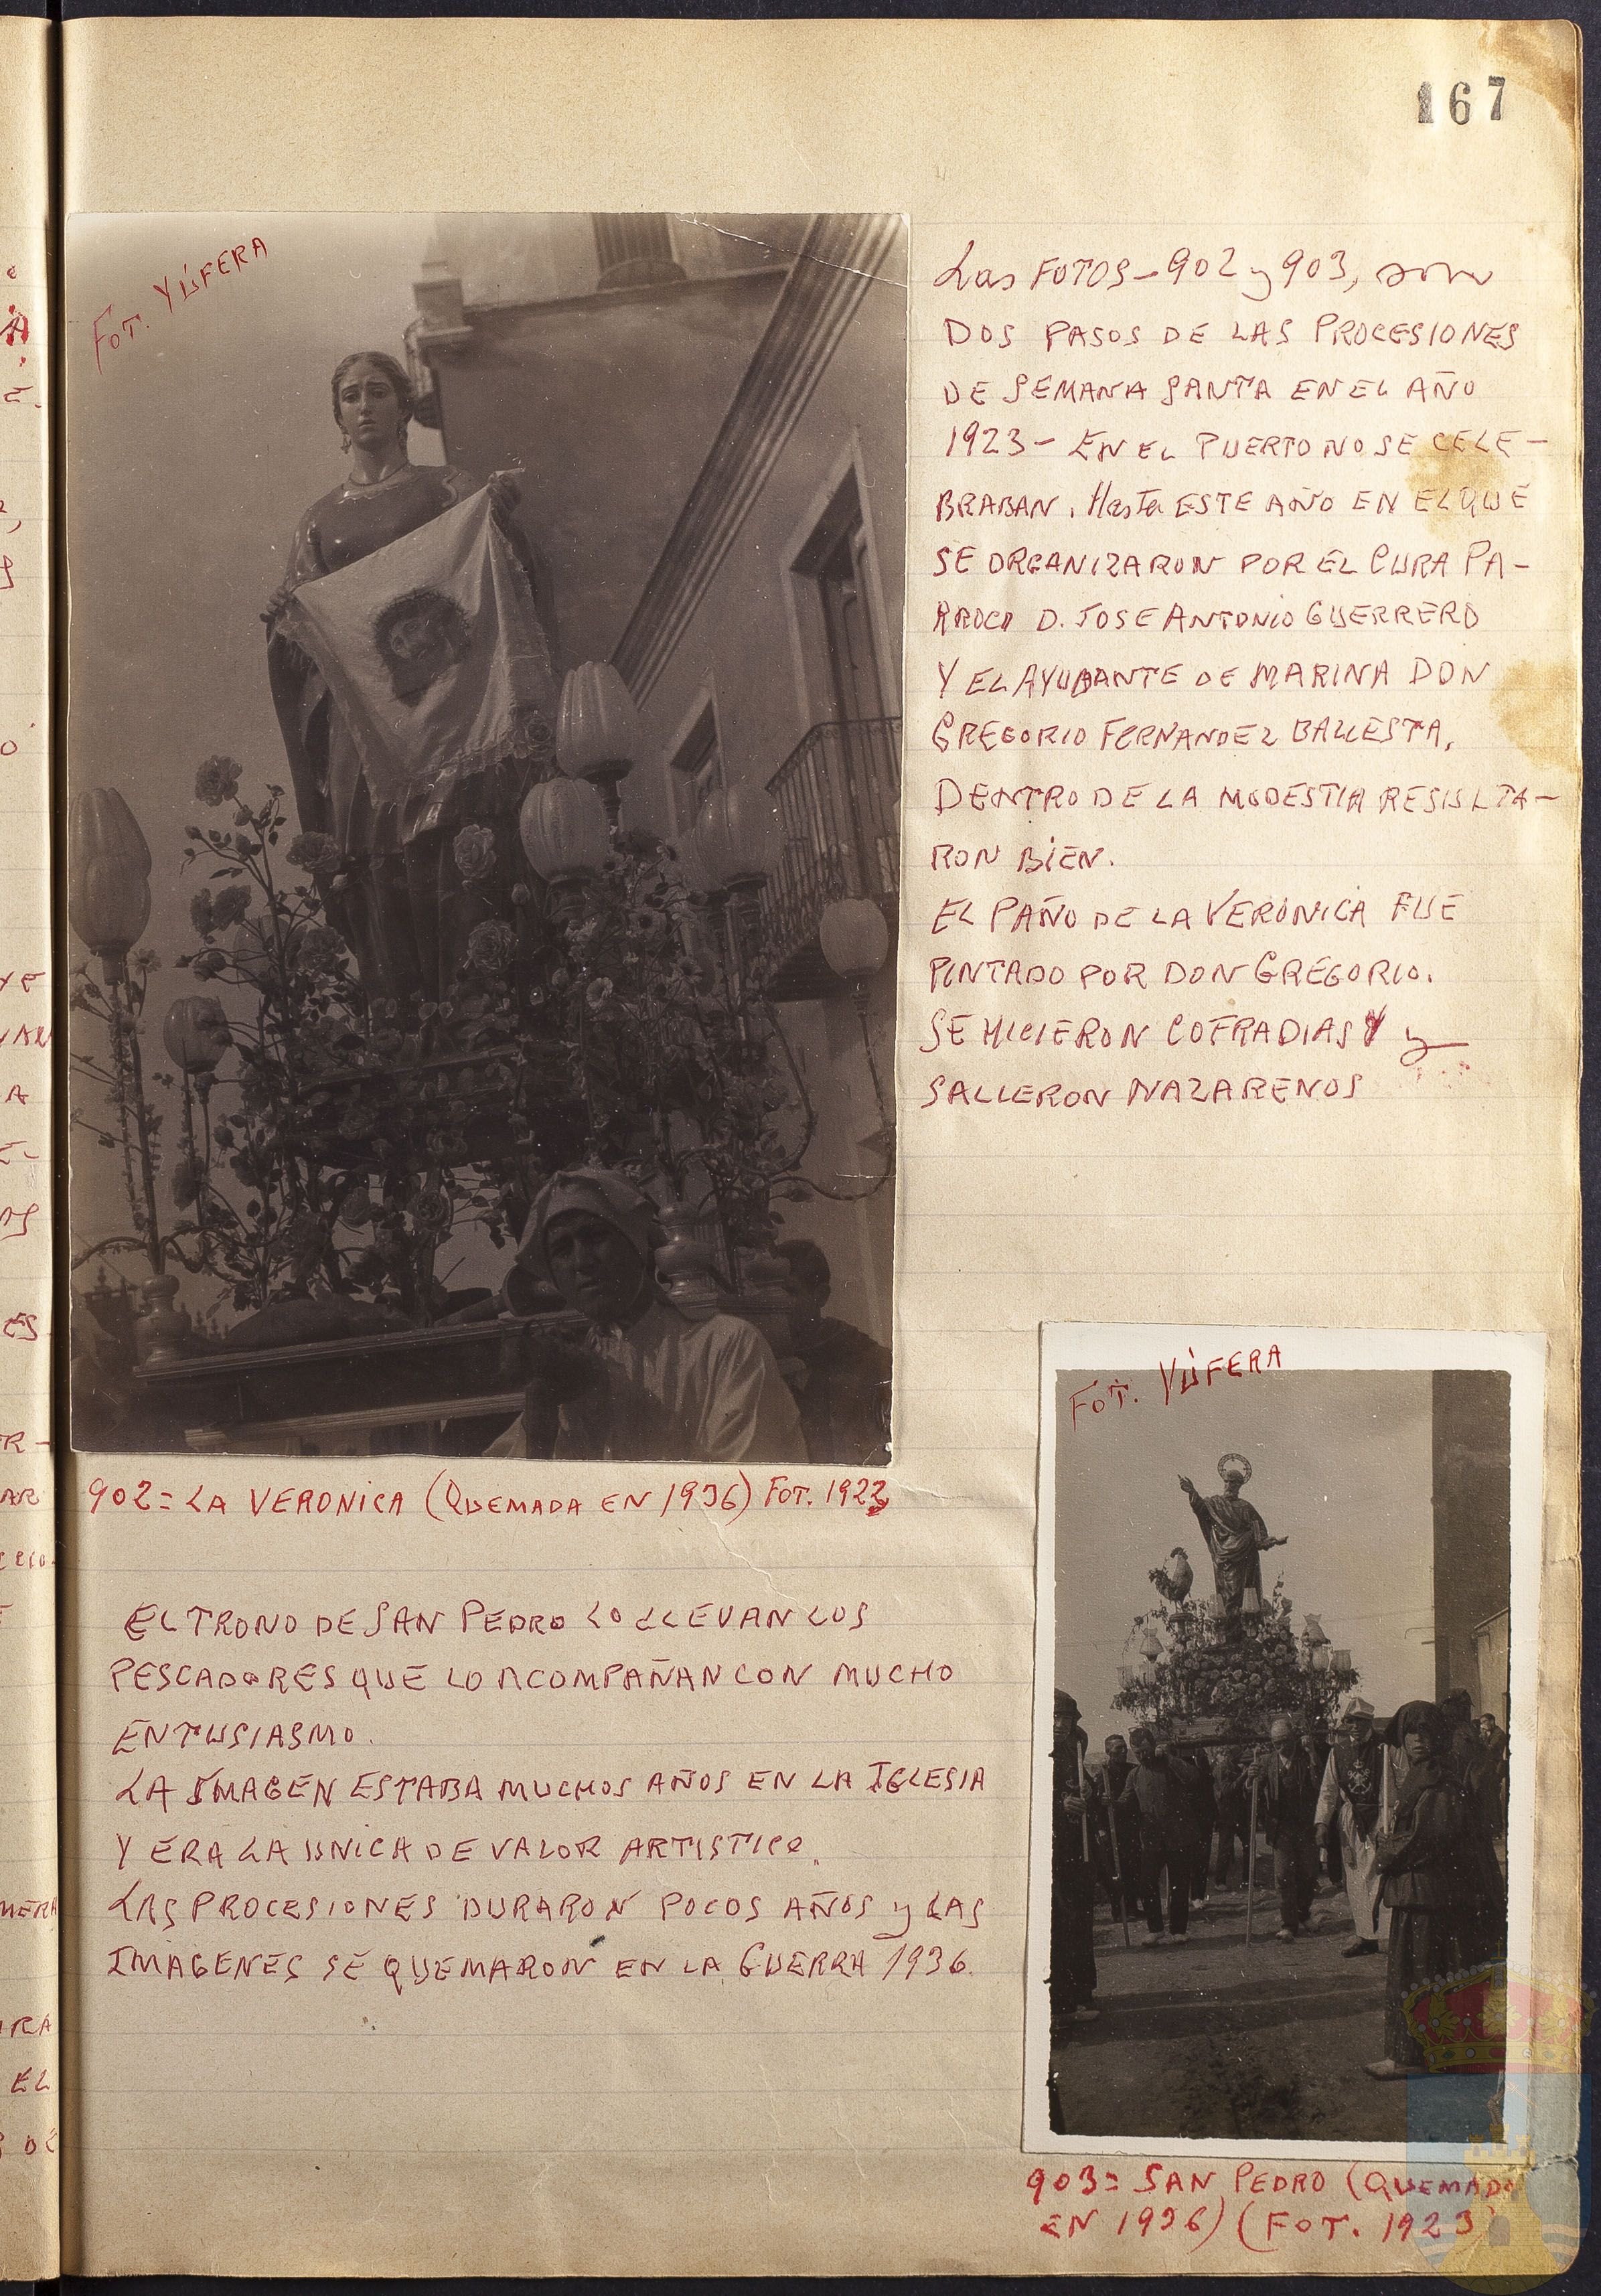 167
Fot. YÚFERA
Las FOTOS - 902 y 903, son
DOS PASOS DE LAS PROCESIONES
DE SEMANA SANTA EN EL AÑO
1923 - EN EL PUERTO NO SE CELE-
BRABAN. Hasta ESTE AÑO EN EL QUE
SE ORGANIZARON POR EL CURA PA-
RROCO D. JOSE ANTONIO GUERRERO
Y EL AYUDANTE DE MARINA DON
GREGORIO FERNANDEZ BALLESTA.
DENTRO DE LA MODESTIA RESULTA-
RON BIEN.
EL PAÑO DE LA VERONICA FUE
PINTADO POR DON GREGORIO.
SE HICIERON COFRADIAS y
SALLERON NAZARENOS
902 = LA VERONICA (QUEMADA EN 1936) FOT. 1923
EL TRONO DE SAN PEDRO LO LLEVAN LOS
PESCADORES QUE LO ACOMPAÑAN CON MUCHO
ENTUSIASMO.
LA IMAGEN ESTABA MUCHOS AÑOS EN LA IGLESIA
Y ERA LA UNICA DE VALOR ARTISTICO.
LAS PROCESIONES DURARON POCOS AÑOS y LAS
IMAGENES SE QUEMARON EN LA GUERRA 1936.
Fot. YÚFERA
903 = SAN PEDRO (QUEMADO
EN 1936) (FOT. 1923)